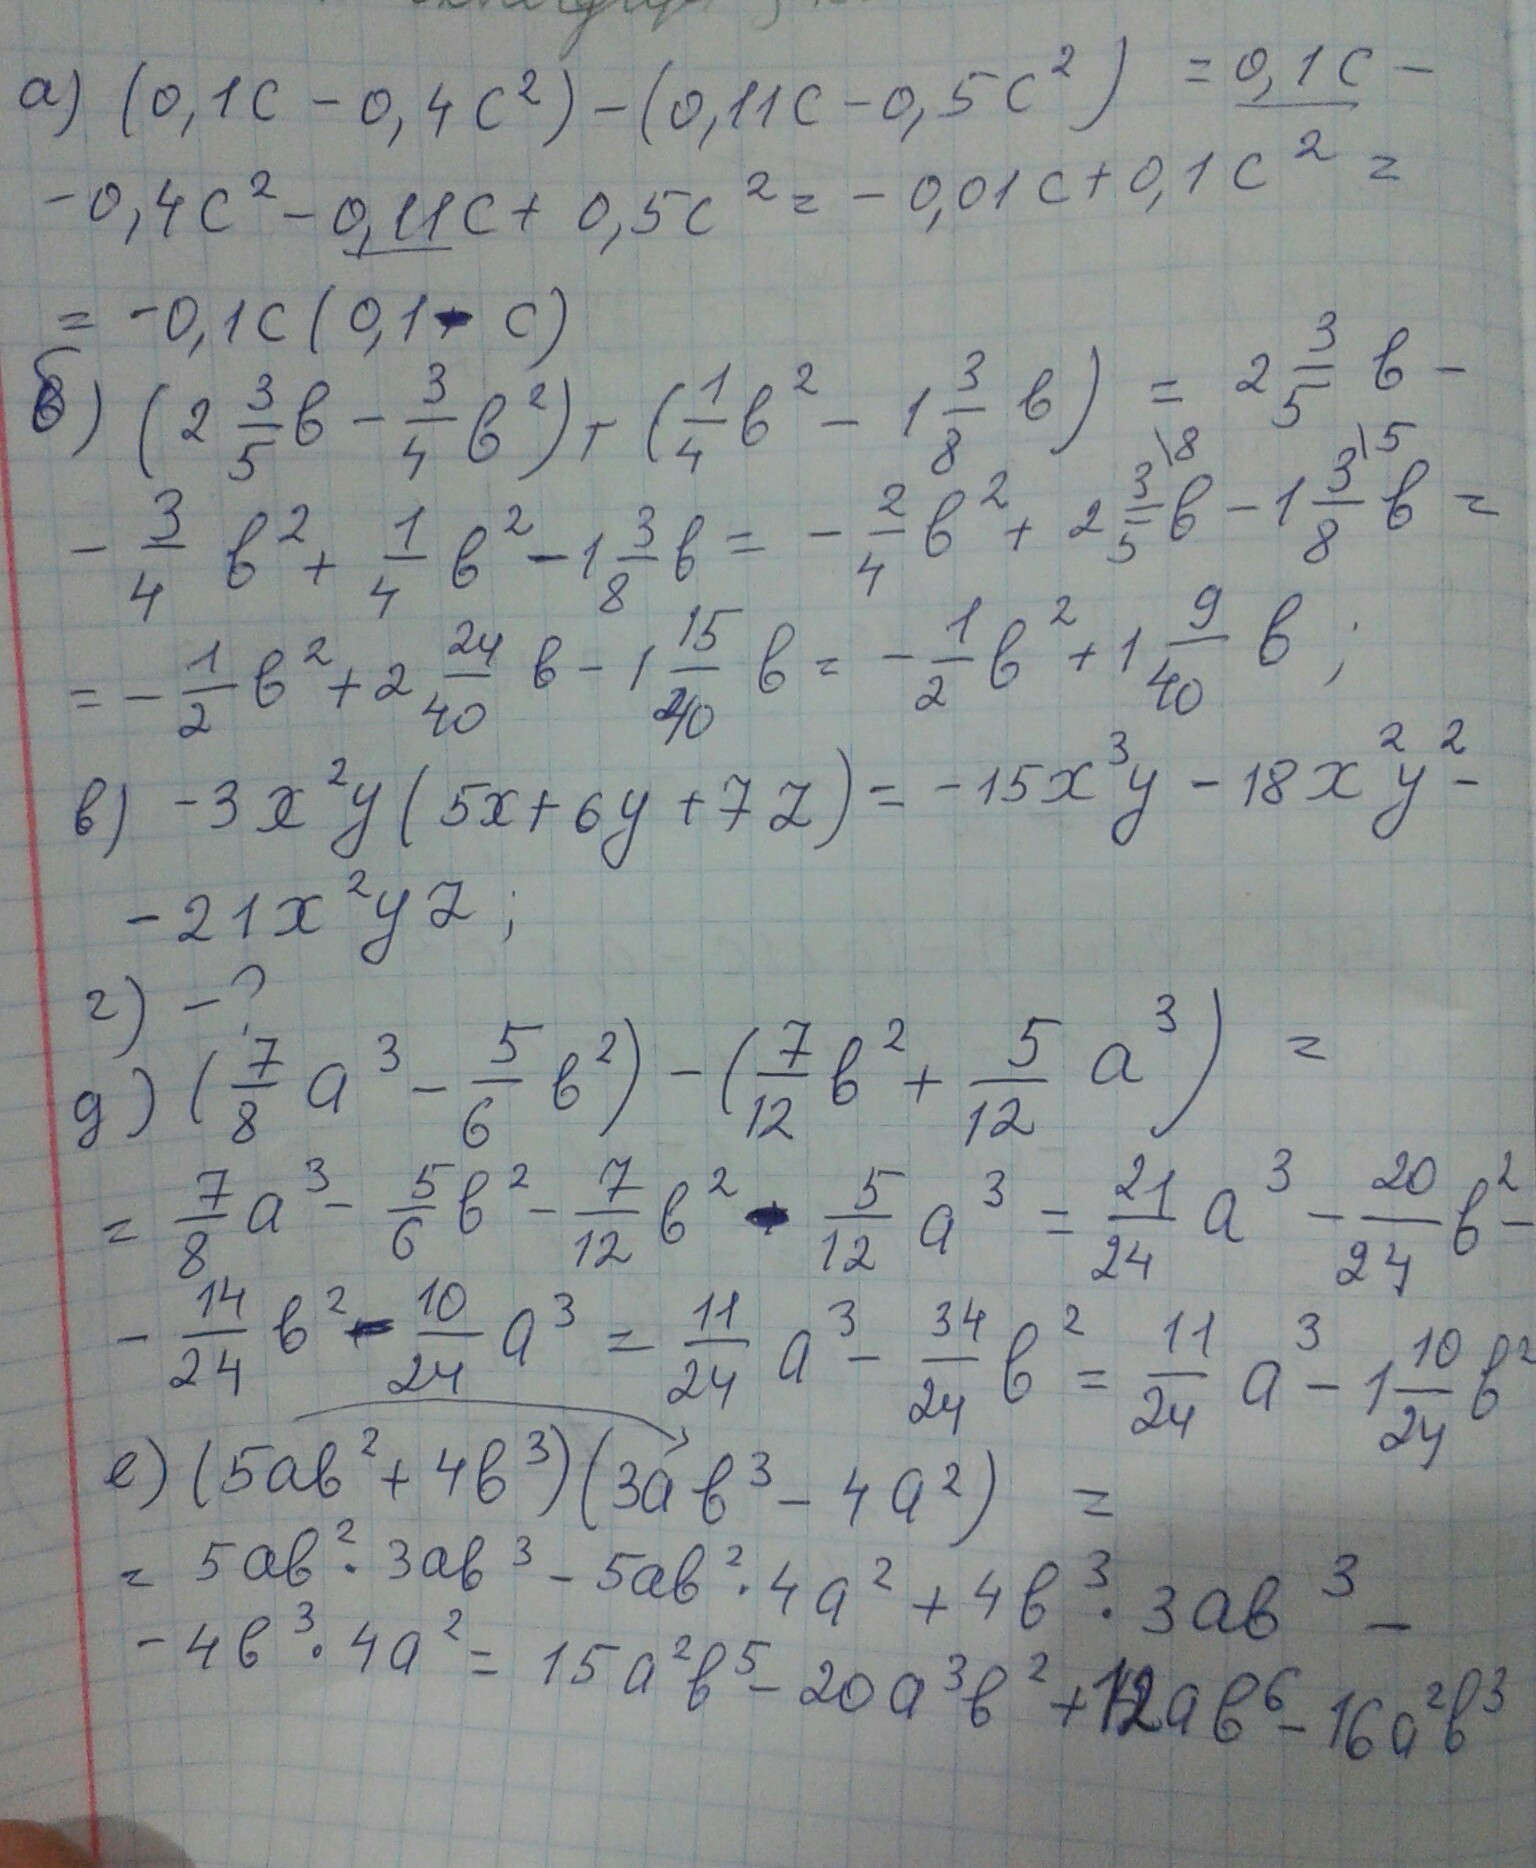 а) (0,1c - 0,4c²) - (0,11c - 0,5c²) = 0,1c -
- 0,4c² - 0,11c + 0,5c² = - 0,01c + 0,1c² =
= -0,1c (0,1 - c)
б) (2 3/5 b - 3/4 b²) + (1/4 b² - 1 3/8 b) = 2 3/5 b -
- 3/4 b² + 1/4 b² - 1 3/8 b = - 2/4 b² + 2 3/5 \8 b - 1 3/8 \5 b =
= - 1/2 b² + 2 24/40 b - 1 15/40 b = - 1/2 b² + 1 9/40 b ;
в) -3x²y (5x + 6y + 7z) = -15x³y - 18x²y² -
- 21x²yz ;
г) - ?
д) (7/8 a³ - 5/6 b²) - (7/12 b² + 5/12 a³) =
= 7/8 a³ - 5/6 b² - 7/12 b² - 5/12 a³ = 21/24 a³ - 20/24 b² -
- 14/24 b² - 10/24 a³ = 11/24 a³ - 34/24 b² = 11/24 a³ - 1 10/24 b²
е) (5ab² + 4b³)(3ab³ - 4a²) =
= 5ab² · 3ab³ - 5ab² · 4a² + 4b³ · 3ab³ -
- 4b³ · 4a² = 15a²b⁵ - 20a³b² + 12ab⁶ - 16a²b³